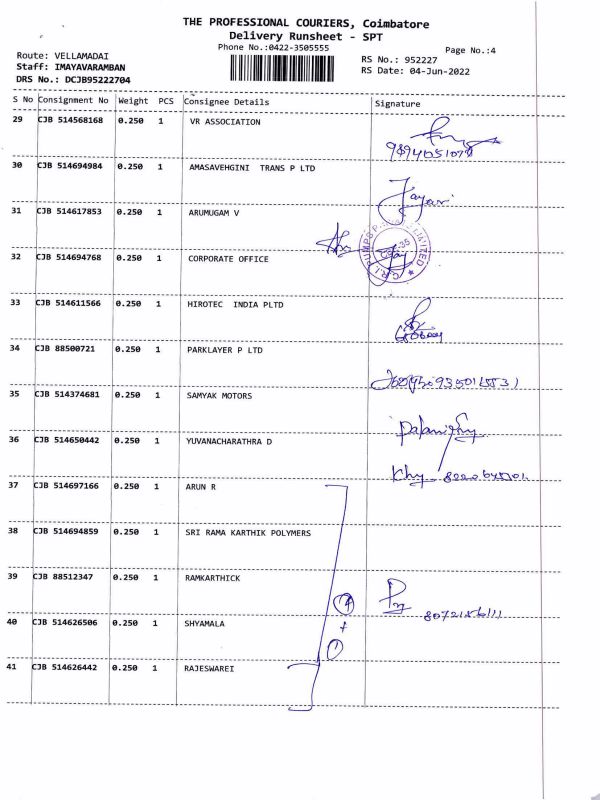 THE PROFESSIONAL COURIERS, Coimbatore
Delivery Runsheet - SPT
Phone No.:0422-3505555
Page No.:4
Route: VELLAMADAI
Staff: IMAYAVARAMBAN
DRS No.: DCJB95222704
RS No.: 952227
RS Date: 04-Jun-2022
S No Consignment No Weight PCS Consignee Details Signature
29 CJB 514568168 0.250 1 VR ASSOCIATION
30 CJB 514694984 0.250 1 AMASAVEHGINI TRANS P LTD
Jayan
31 CJB 514617853 0.250 1 ARUMUGAM V
32 CJB 514694768 0.250 1 CORPORATE OFFICE
C.R.I. PUMPS LIMITED
33 CJB 514611566 0.250 1 HIROTEC INDIA PLTD
34 CJB 88500721 0.250 1 PARKLAYER P LTD
35 CJB 514374681 0.250 1 SAMYAK MOTORS
36 CJB 514650442 0.250 1 YUVANACHARATHRA D
37 CJB 514697166 0.250 1 ARUN R
38 CJB 514694859 0.250 1 SRI RAMA KARTHIK POLYMERS
39 CJB 88512347 0.250 1 RAMKARTHICK
40 CJB 514626506 0.250 1 SHYAMALA
41 CJB 514626442 0.250 1 RAJESWAREI